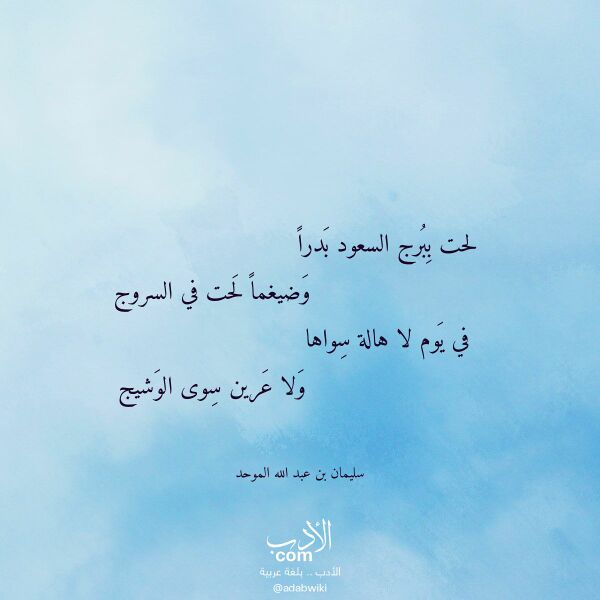 لحت بِبُرج السعود بَدراً
وَضيغماً لَحت في السروج
في يَوم لا هالة سِواها
وَلا عَرين سِوى الوَشيج
سليمان بن عبد الله الموحد
الأدب
com
الأدب .. بلغة عربية
@adabwiki